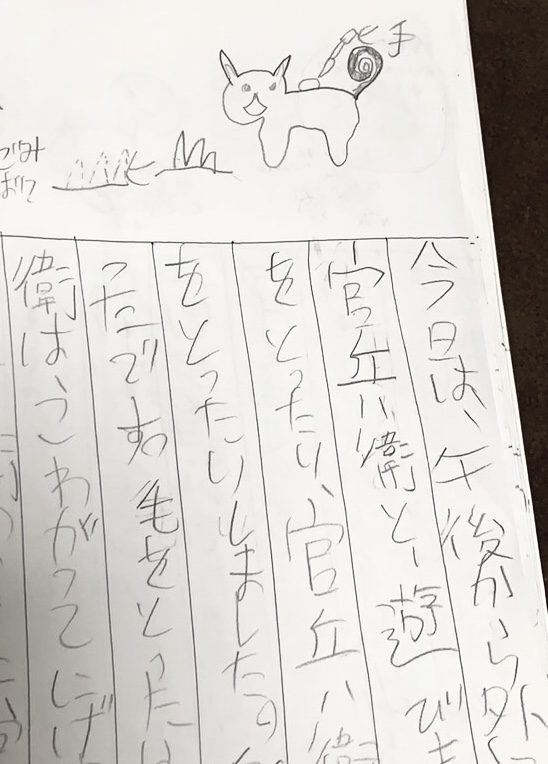 手
今日は、午後から外
官兵衛と遊びま
をとったり、官兵衛
をとったりしました。
ったです。毛をとった
衛は、こわがってにげ